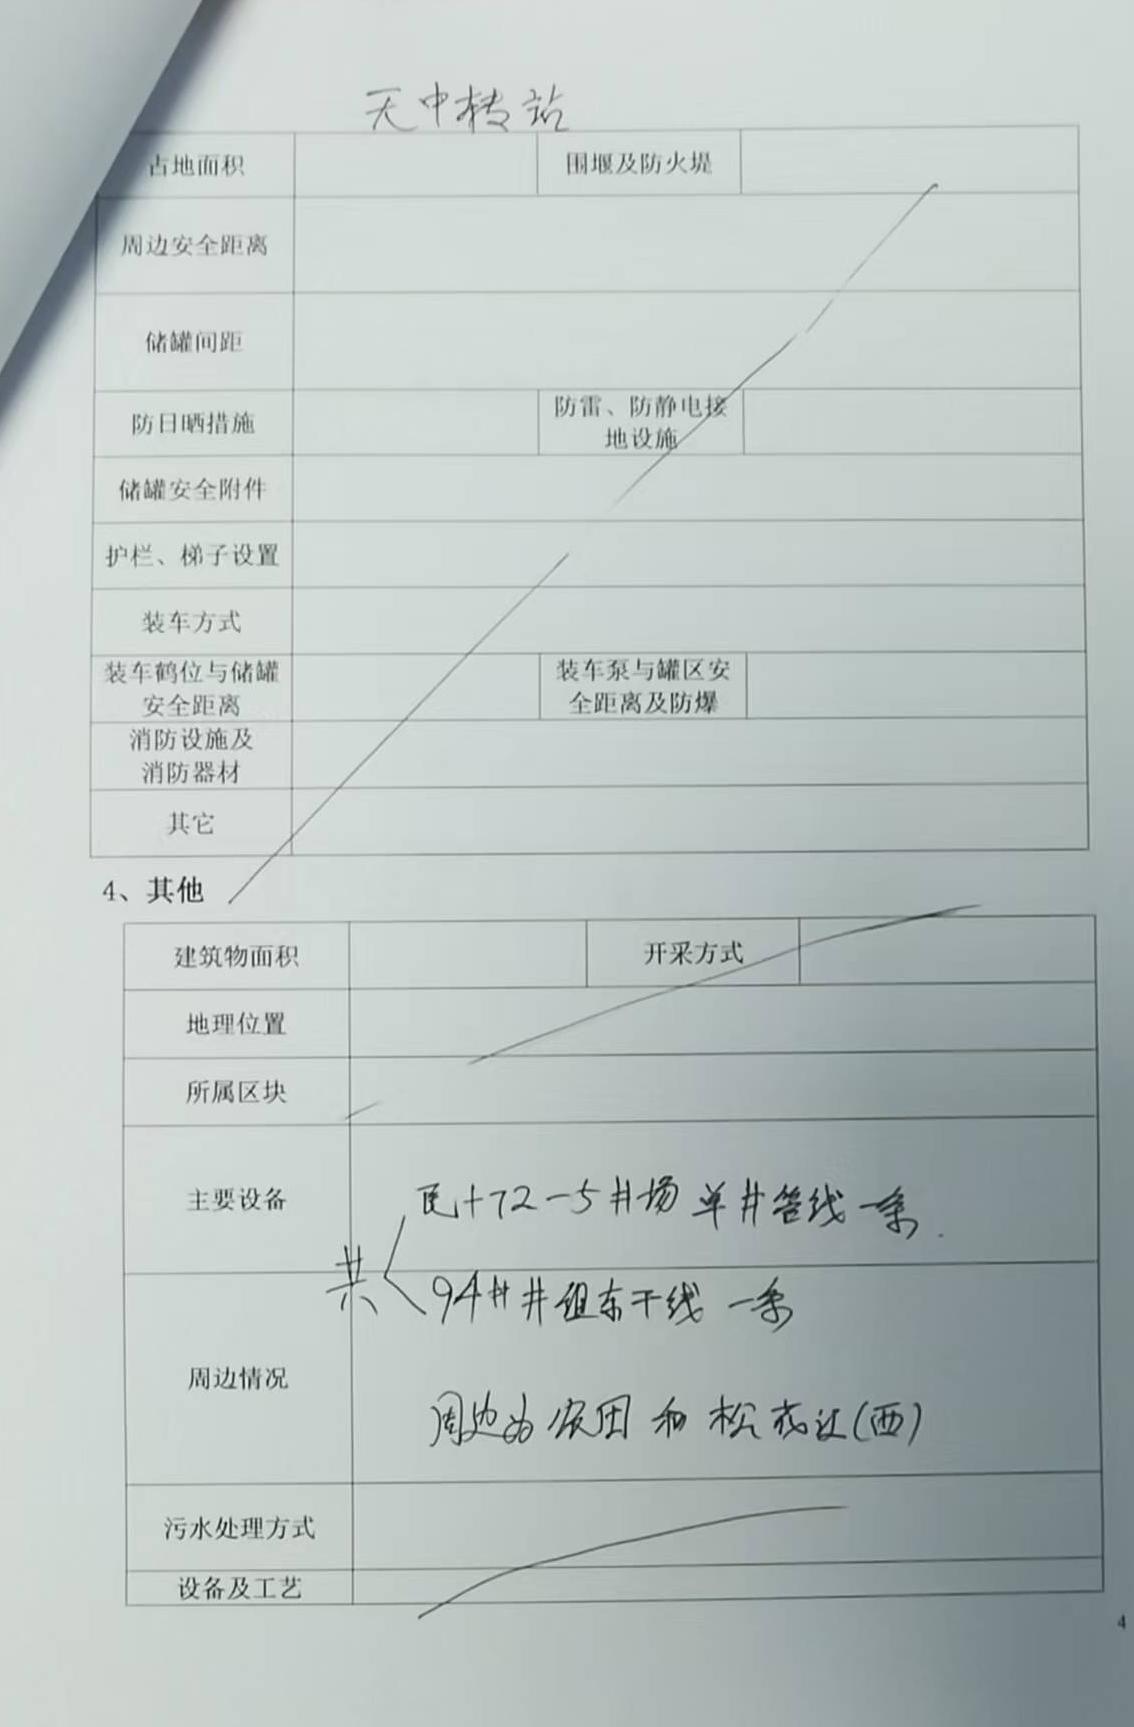 无中转站
占地面积 围堰及防火堤
周边安全距离
储罐间距
防日晒措施 防雷、防静电接
地设施
储罐安全附件
护栏、梯子设置
装车方式
装车鹤位与储罐 装车泵与罐区安
安全距离 全距离及防爆
消防设施及
消防器材
其它
4、其他
建筑物面积 开采方式
地理位置
所属区块
主要设备 民+72-5井场 单井管线一条
共
94#井组东干线 一条
周边情况
周边为农田和松 (西)
污水处理方式
设备及工艺
4